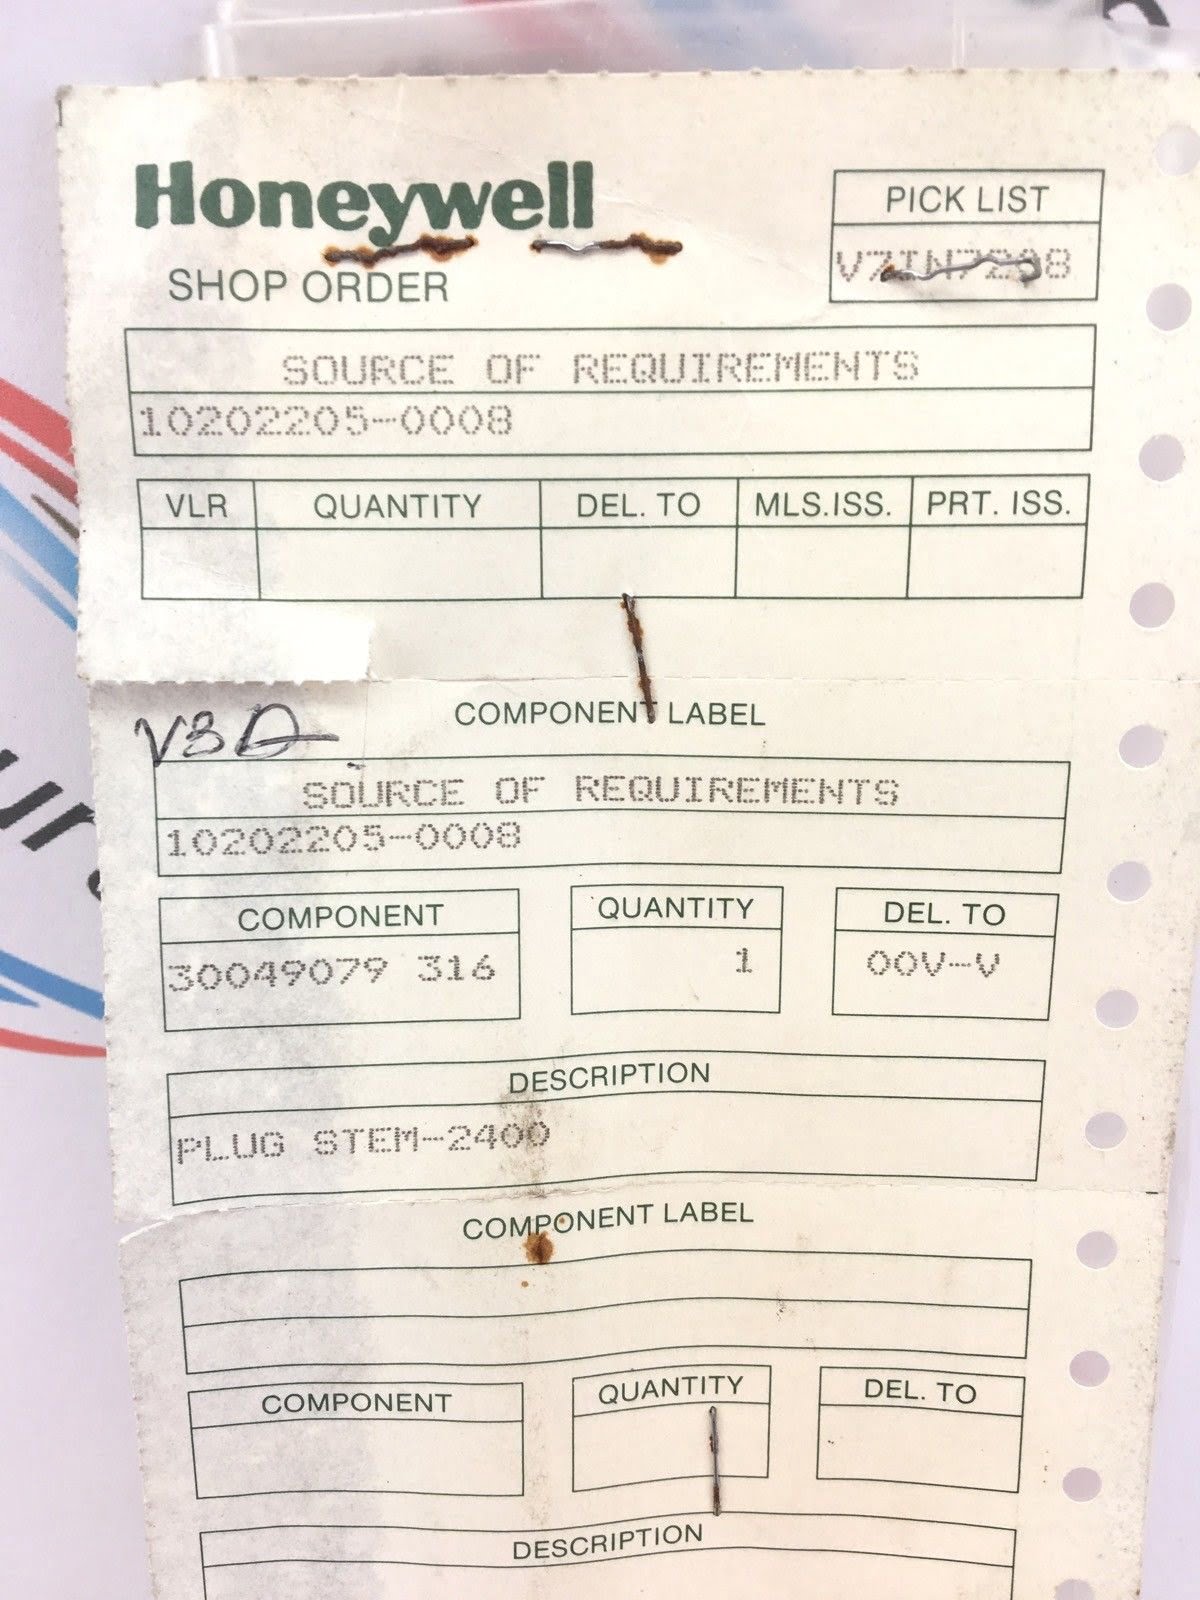 Honeywell
PICK LIST
SHOP ORDER
SOURCE OF REQUIREMENTS
10202205-0008
VLR QUANTITY DEL. TO MLS.ISS. PRT. ISS.
COMPONENT LABEL
SOURCE OF REQUIREMENTS
10202205-0008
COMPONENT QUANTITY DEL. TO
30049079 316 1 00V-V
DESCRIPTION
PLUG STEM-2400
COMPONENT LABEL
COMPONENT QUANTITY DEL. TO
DESCRIPTION